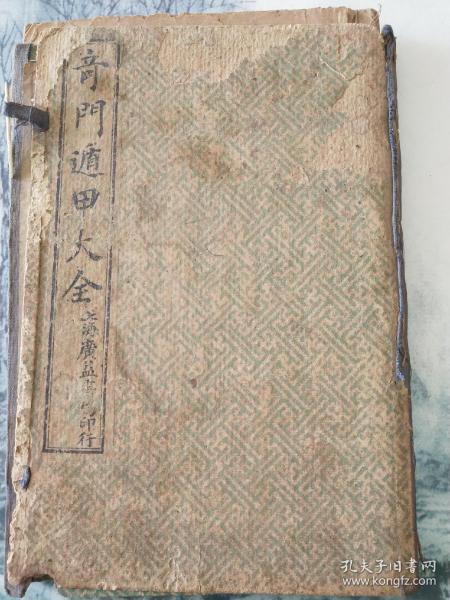 奇門遁甲大全
上海廣益書局印行
孔夫子旧书网
www.kongfz.com